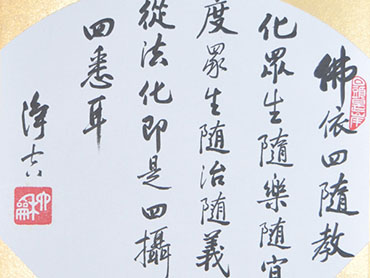 佛依四隨教
化眾生隨樂隨宜
度眾生隨治隨義
從法化即是四攝
四悉耳